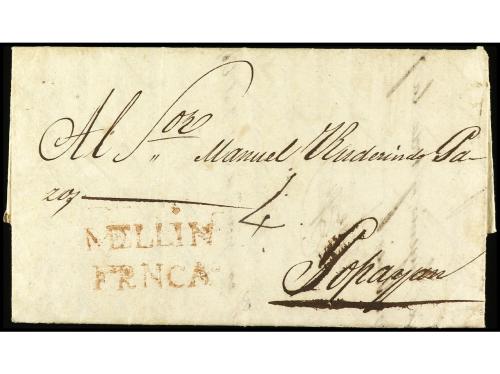 Al Sor
" Manuel Ruderindo Pa-
zos 4
MELLIN
FRNCA
Popayan